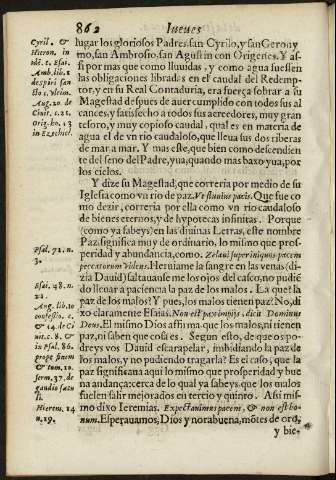 862 Jueves
lugar los gloriosos Padres, san Cyrilo, y san Gerony
mo, san Ambrosio, san Agustin con Origenes. Y as
si por mas que como lluuias, y como agua fuessen
las obligaciones libradas en el caudal del Redemp-
tor, y en su Real Contaduria, era fuerça sobrar a su
Magestad despues de auer cumplido con todos sus al
cances, y satisfecho a todos sus acreedores, muy gran
tesoro, y muy copioso caudal, qual es en materia de
agua el de vn rio caudaloso, que lleua sus dos riberas
de mar a mar. Y mas este, que bien como descendien
te del seno del Padre, yua, quando mas baxo yua, por
los cielos.
Y dize su Magestad, que correria por medio de su
Iglesia como vn rio de paz. Vt fluuius pacis. Que fue co
mo dezir, correria por ella como vn rio caudaloso
de bienes eternos, y de hypotecas infinitas. Porque
(como ya sabeys) en las diuinas Letras, este nombre
Paz, significa muy de ordinario, lo mismo que pros-
peridad y abundancia, como. Zelaui super iniquos pacem
peccatorum videns. Heruiame la sangre en las venas (di-
zia Dauid) saltauaseme los ojos del casco, no pudiẽ
do lleuar a paciencia la paz de los malos. La que? la
paz de los malos? Y pues, los malos tienen paz? No, di
xo claramente Esaias. Non est pax impijs, dicit Dominus
Deus. El mismo Dios affirma que los malos, ni tienen
paz, ni saben que cosa es. Segun esto, de que os po-
dreys vos Dauid escarapelar, imbidiando la paz de
los malos, y no pudiendo tragarla? Es el caso, que la
paz significaua aqui lo mismo que prosperidad y bue
na andança: cerca de lo qual ya sabeys que los malos
suelen salir mejorados en tercio y quinto. Assi mis-
mo dixo Ieremias. Expectauimus pacem, & non est bo-
num. Esperauamos, Dios y norabuena, mõtes de oro,
y bie-
Cyril. &
Hieron. in
Amb. lib. 1
Aug. 20. de
Ciuit. c. 21.
Orig. ho. 13
in Ezechiel.
Psal. 72. n.
3.
Esai. 48. n.
22.
Aug. lib. 10
& 14. de Ci
uit. c. 8. &
in Psal. 86.
prope finem
& tom. 10.
gaudio sæcu
li.
Hierem. 14
n. 19.